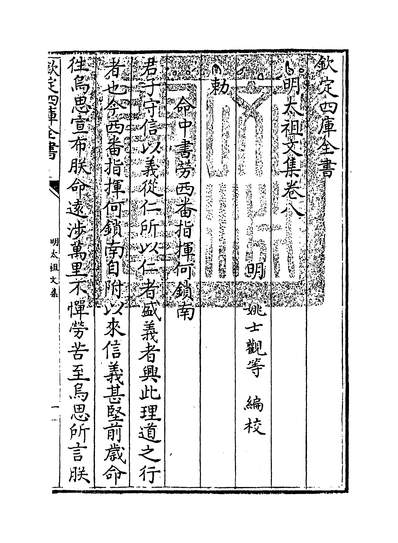 欽定四庫全書
明太祖文集卷八
明 姚士觀等 編校
勅
命中書勞西番指揮何鎖南
君子守信以義從仁所以仁者盛義者興此理道之行
者也今西番指揮何鎖南自附以來信義甚堅前歲命
徃烏思宣布朕命遠涉萬里不憚勞苦至烏思所言朕
欽定四庫全書
明太祖文集
一